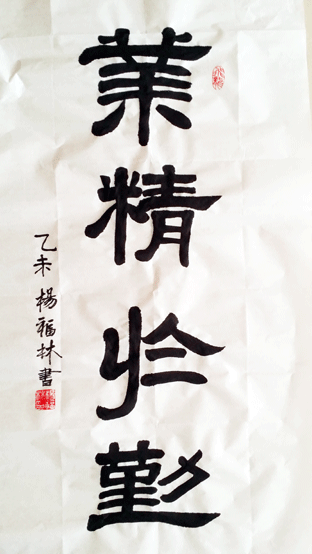 業精於勤
乙未楊福林書